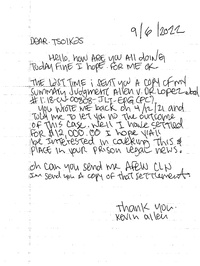 9/6/2022
DEAR TSOIKOS
Hello, how are you all doing,
Today Fine I hope For me OK.
THE LAST TIME i SENT YOU A COPY OF my
Summary Judgment Allen v. DR Lopez et al
# 1:18-cv-
you wrote me back on 9/12/21 and
TOLD me TO let you no THE outcome
OF THIS CASE. Well I have settled
FOR $12,000.00 I hope y'all
be InTeresTed in covering THIS &
PLACE in your Prison legal news.
oh can you send me AFEW CLN
Im send you A copy of that settlement.
THANK YOU.
Kevin Allen